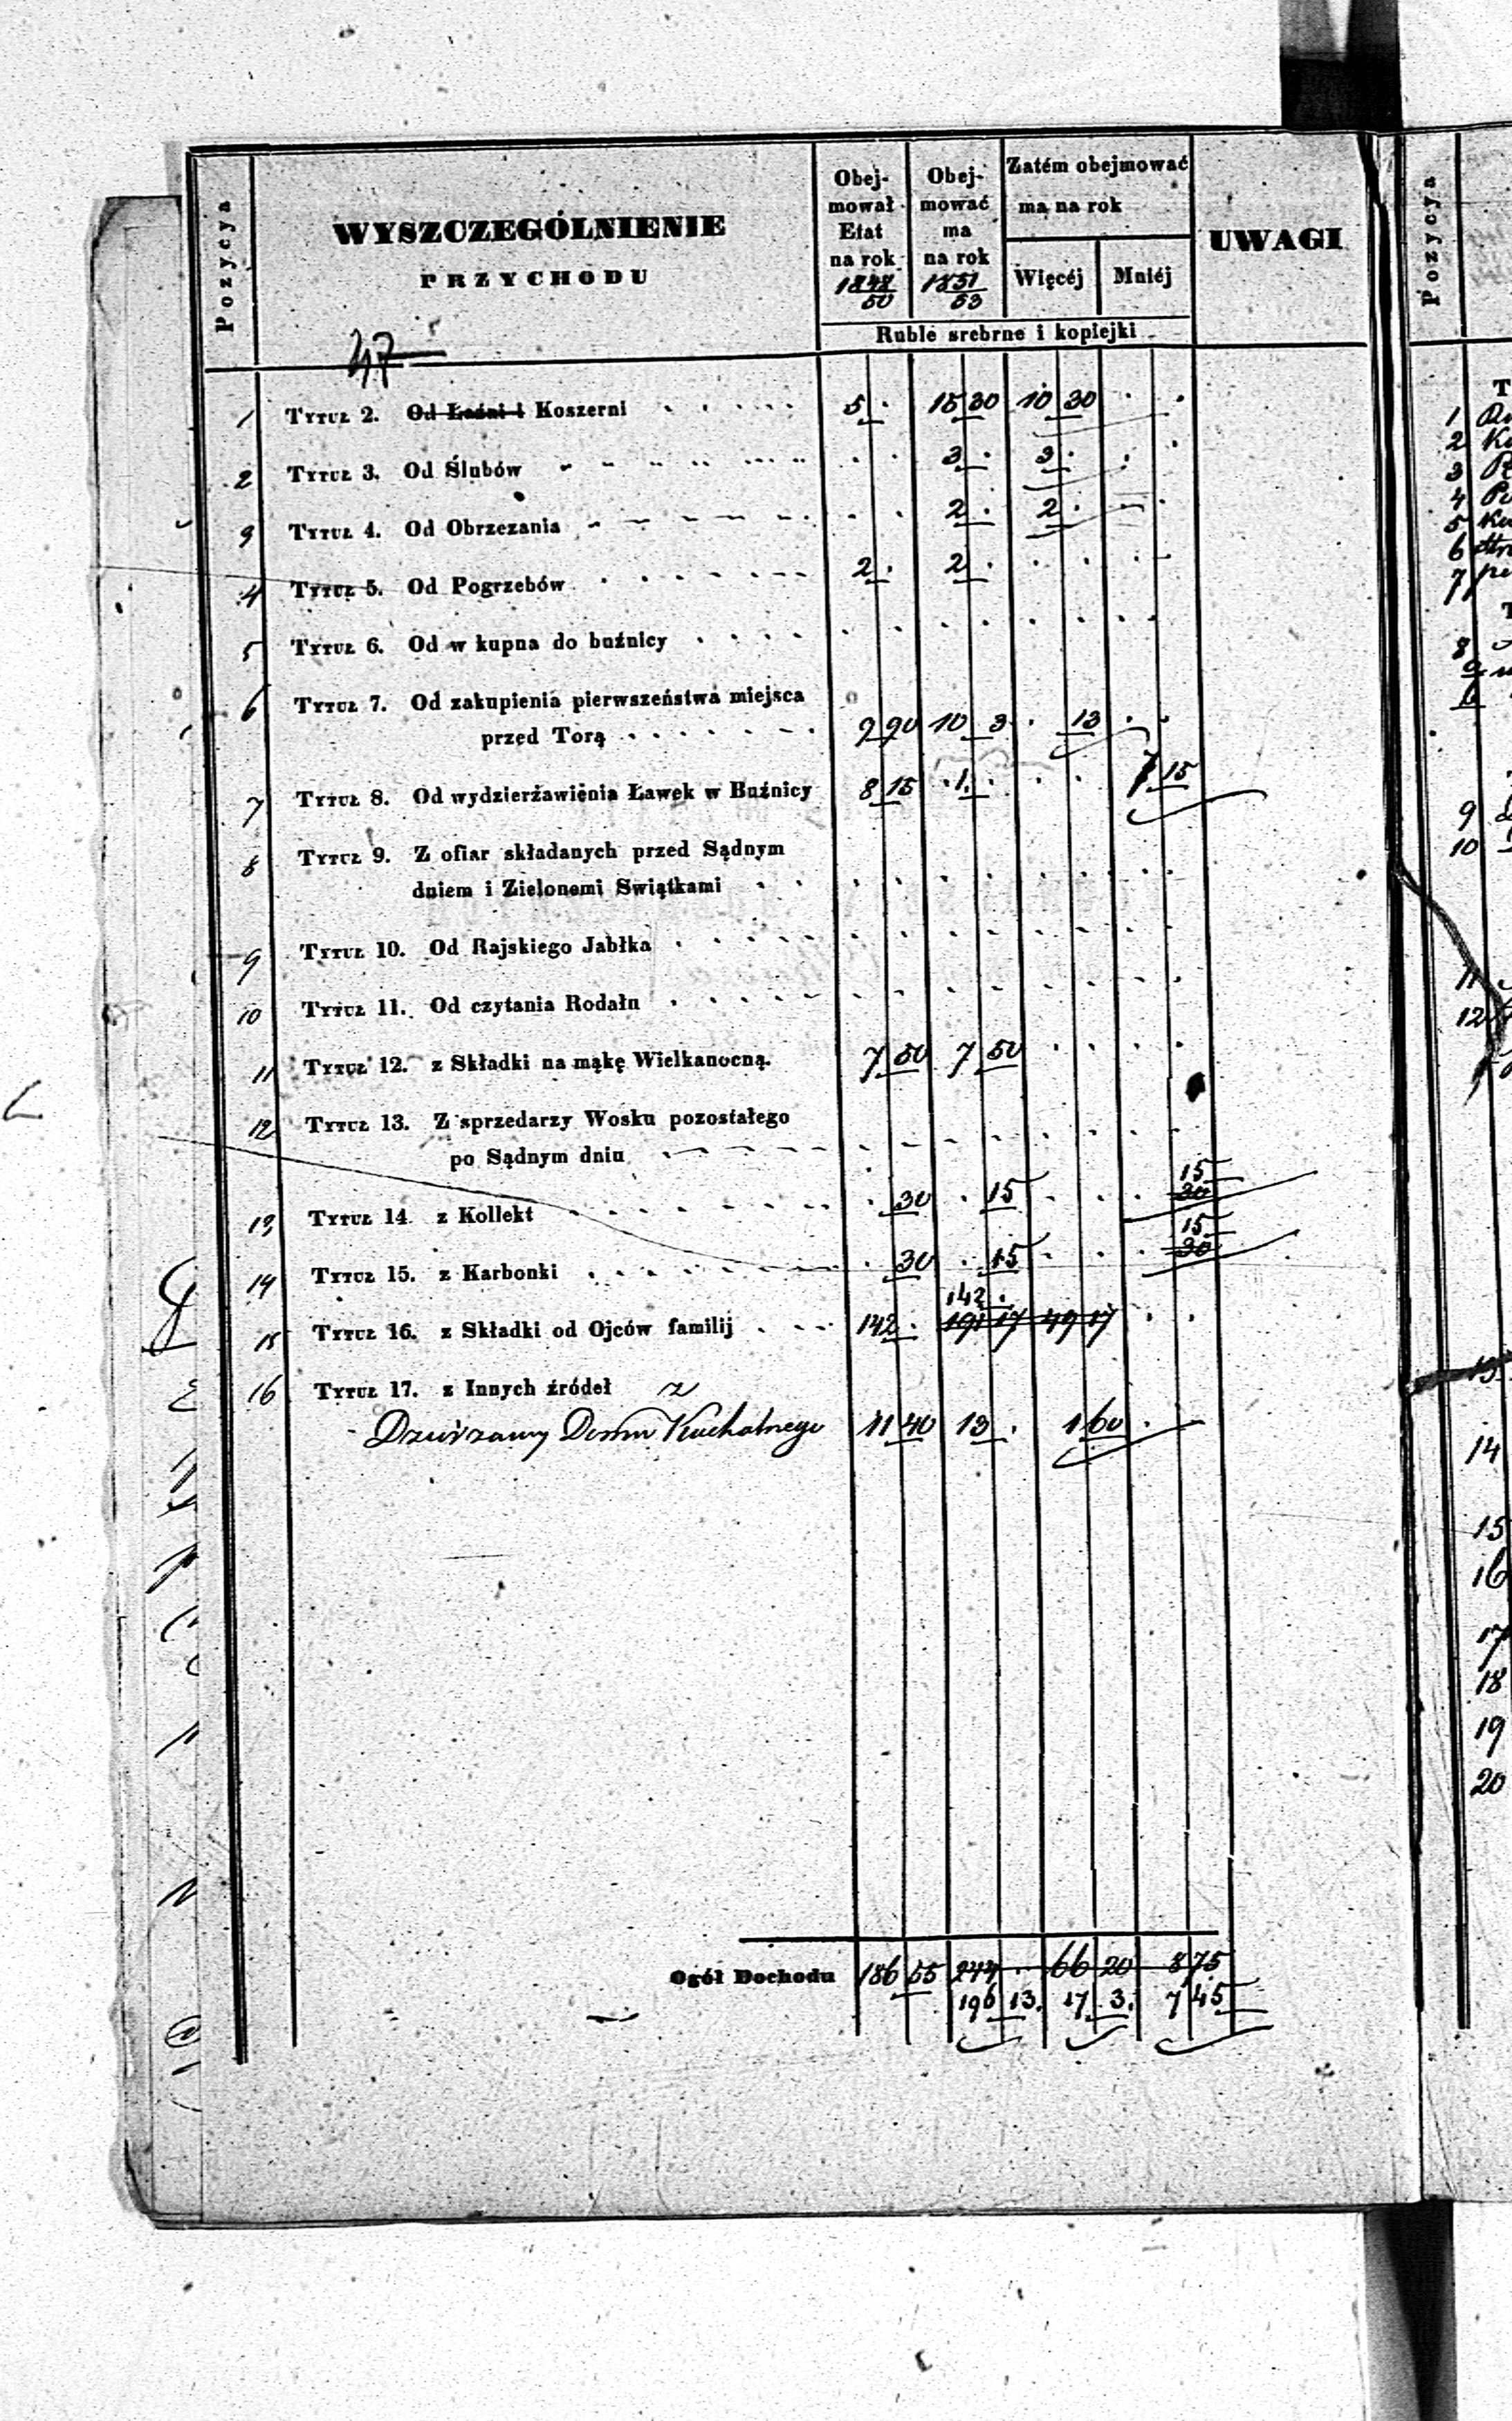 Pozycya
WYSZCZEGÓLNIENIE
PRZYCHODU
Obejmował Etat na rok 1848/50
Obejmować ma na rok 1851/53
Zatém obejmować ma na rok
Więcéj Mniéj
UWAGI
Ruble srebrne i kopiejki
47
1 Tytuł 2. Od Łaźni i Koszerni 5 . 15 30 10 30
2 Tytuł 3. Od Ślubów . . 3 . 3 .
3 Tytuł 4. Od Obrzezania . . 2 . 2 .
4 Tytuł 5. Od Pogrzebów 2 . 2 .
5 Tytuł 6. Od w kupna do buźnicy
6 Tytuł 7. Od zakupienia pierwszeństwa miejsca
przed Torą 9 90 10 3 . 13
7 Tytuł 8. Od wydzierżawienia Ławek w Buźnicy 8 15 1 . . . 7 15
8 Tytuł 9. Z ofiar składanych przed Sądnym
dniem i Zielonemi Swiątkami
9 Tytuł 10. Od Rajskiego Jabłka
10 Tytuł 11. Od czytania Rodału
11 Tytuł 12. z Składki na mąkę Wielkanocną. 7 50 7 50
12 Tytuł 13. Z sprzedarzy Wosku pozostałego
po Sądnym dniu
15
13 Tytuł 14. z Kollekt . 30 . 15 . . . 30
15
14 Tytuł 15. z Karbonki . 30 . 15 . . . 30
142 .
15 Tytuł 16. z Składki od Ojców familij 142 . 191 17 49 17
16 Tytuł 17. z Innych źródeł z
Dzierżawy Domu Kuchalnego 11 40 13 . 1 60
Ogół Dochodu 186 55 244 . 66 20 8 75
196 13. 17 3. 7 45
Pozycya
1
2
3
4
5
6
7
8
9
10
11
12
13
14
15
16
17
18
19
20